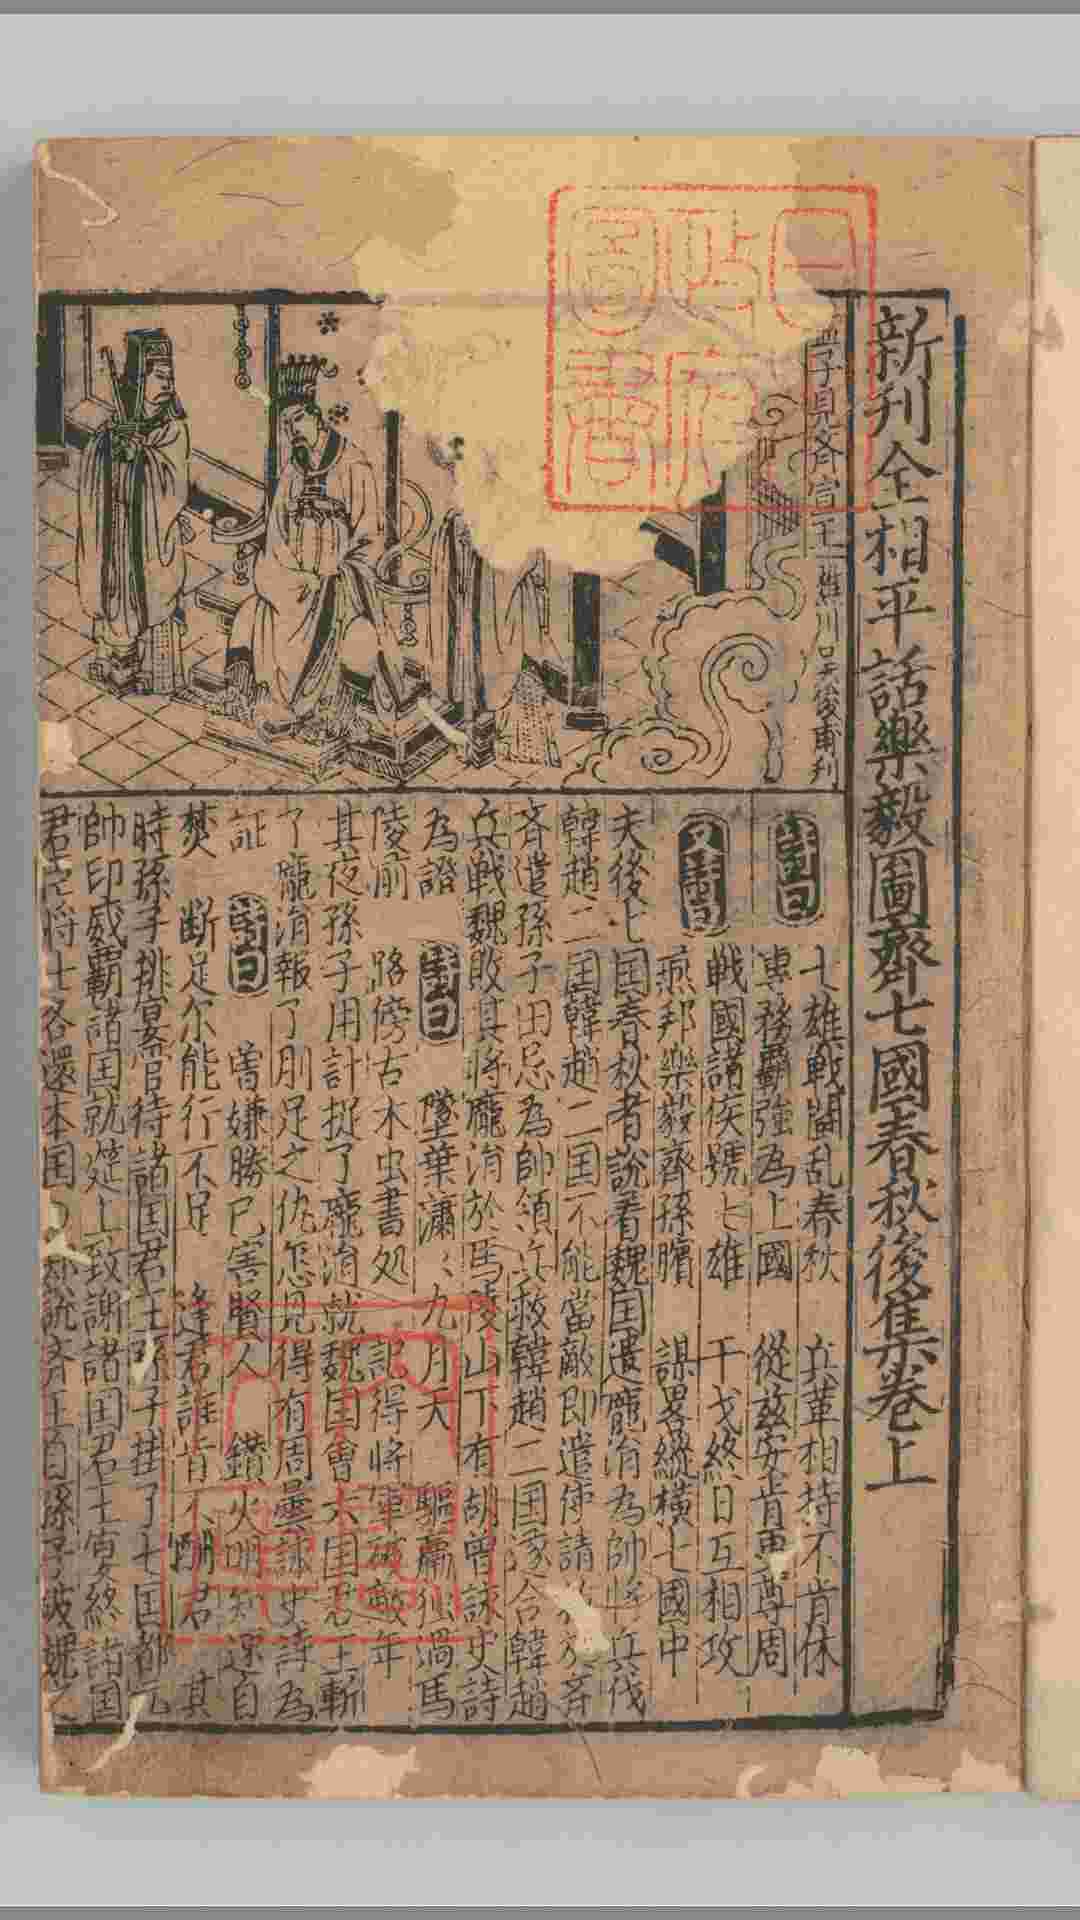 新刊全相平話樂毅圖齊七國春秋後集卷上
孟子見齊宣王 樵川吳俊甫刊
詩曰
七雄戰鬭乱春秋 兵革相持不肯休
專務霸強為上國 從玆安肯更尊周
戰國諸侯號七雄 干戈終日互相攻
又詩曰
燕邦樂毅齊孫臏 謀畧縱橫七國中
夫後七囯春秋者說着魏囯遣龐涓為帥將兵伐
韓趙二囯韓趙二囯不能當敵即遣使請救於斉
斉遣孫子田忌為帥領兵救韓趙二囯遂合韓趙
兵戰魏敗其將龐涓於馬陵山下有胡曾詠史詩
為證 詩曰 墜葉瀟〻九月天 驅羸獨過馬
陵前 路傍古木虫書処 記得將軍破敵年
其夜孫子用計捉了龐涓就魏囯會六囯君王斬
了龐涓報了刖足之仇怎見得有周曇詠史詩為
証 詩曰 曾嫌勝己害賢人 鑚火明知速自
焚 断足尔能行不足 逢君誰肯不酬君 其
時孫子排宴筭待諸囯君王孫子掛了七囯都元
帥印威霸諸囯就筵上致謝諸囯君王宴終諸囯
君臣將士各還本囯○却說斉王自孫子破魏之
日本政府圖書